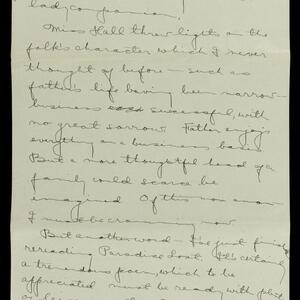 lady companion.
Miss Hall threw lights on the
folk's character which I never
thought of before – such as
father's life having been narrow –
business successful, with
no great sorrow. Father enjoys
everything on a business basis
But a more thoughtful head of a
family could scarce be
imagined. Of this now anon
I must be cramming now
But another word – I've just finished
rereading Paradise Lost. It's certainly
a tremendous poem, which to be
appreciated must be ready with